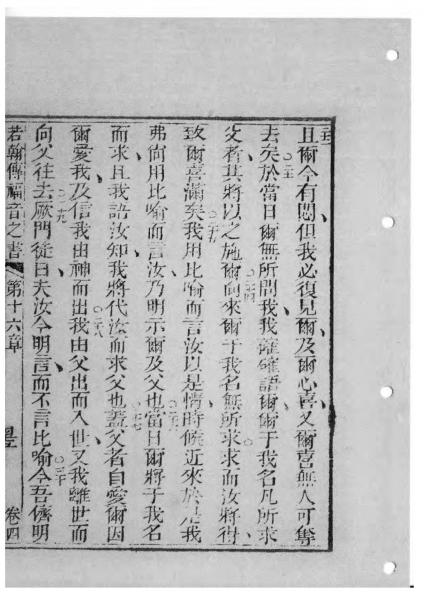 且爾今有悶但我必復見爾及爾心喜又爾喜無人可奪
去矣於當日爾無所問我我確確語爾爾于我名凡所求
父者其將以之施爾向來爾于我名無所求求而汝將得
致爾喜滿矣我用比喻而言汝以是情時候近來於是我
弗尚用比喻而言汝乃明示爾及父也當日爾將于我名
而求且我語汝知我將代汝而求父也蓋父者自愛爾因
爾愛我及信我由神而出我由父出而入世又我離世而
向父往去厥門徒曰夫汝今明言而不言比喻今吾儕明
若翰傳福音之書 第十六章 卷四